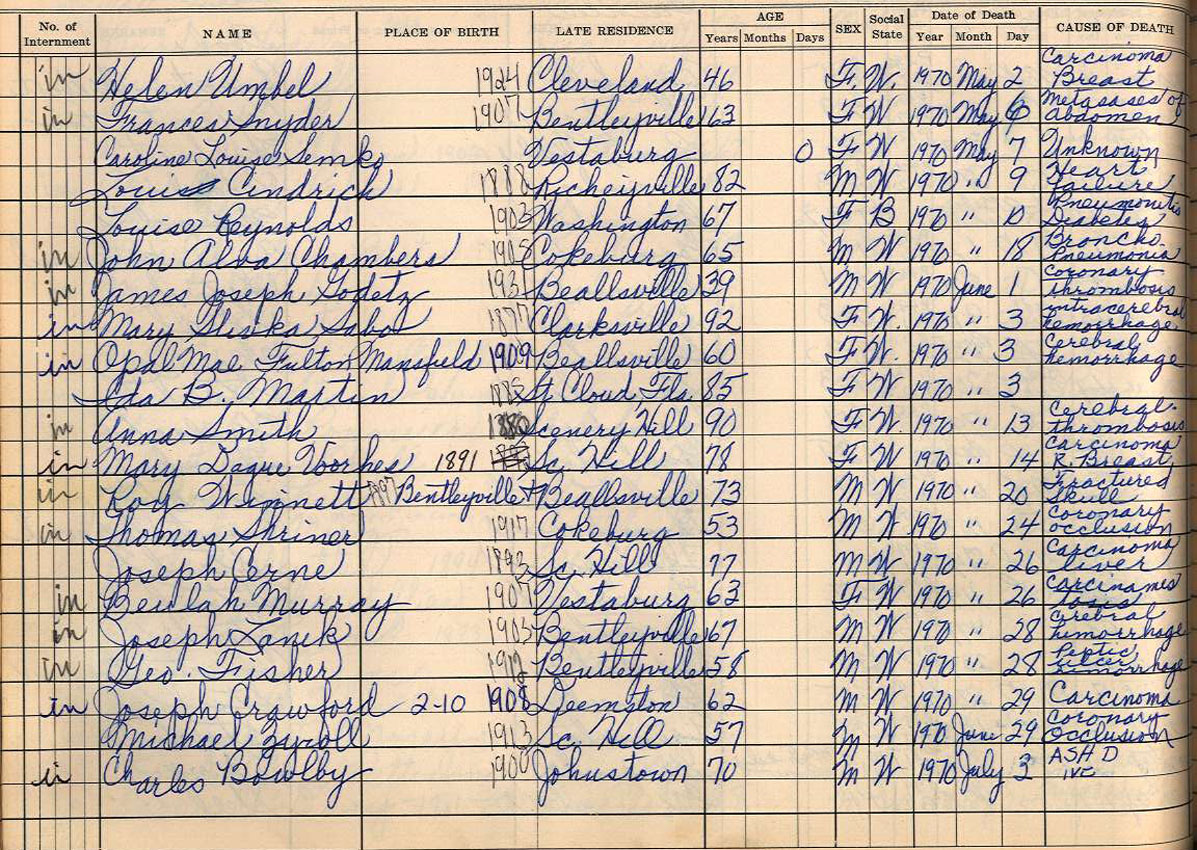 No. of Internment NAME PLACE OF BIRTH LATE RESIDENCE AGE Years Months Days SEX Social State Date of Death Year Month Day CAUSE OF DEATH
in Helen Umbel 1924 Cleveland 46 F. W. 1970 May 2 Carcinoma Breast
in Frances Snyder 1907 Bentleyville 63 F W 1970 May 6 Metasases of abdomen
Caroline Louise Semko Vestaburg 0 F W 1970 May 7 Unknown
Louis Cendrich 1888 Richeyville 82 M W 1970 " 9 Heart failure
Louise Reynolds 1903 Washington 67 F B 1970 " 10 Pneumonitis Diabetes
in John Alva Chambers 1905 Cokeburg 65 M W 1970 " 18 Broncho Pneumonia
in James Joseph Godetz 1931 Beallsville 39 M W 1970 June 1 Coronary thrombosis
in Mary Sabol 1877 Clarksville 92 F W. 1970 " 3 intracerebral hemorrhage
in Opal Mae Fulton Mansfield 1909 Beallsville 60 F W. 1970 " 3 Cerebral hemorrhage
Ida B. Martin 1885 St Cloud Fla. 85 F W 1970 " 3
in Anna Smith 1880 Scenery Hill 90 F W. 1970 " 13 Cerebral thrombosis
in Mary Dague Voorhes 1891 Sc. Hill 78 F W 1970 " 14 Carcinoma R. Breast
in Roy Wipnett 1897 Bentleyville Beallsville 73 M W 1970 " 20 Fractured Skull
in Thomas Shriner 1917 Cokeburg 53 M W 1970 " 24 Coronary occlusion
Joseph Cerne 1893 Sc. Hill 77 M W 1970 " 26 Carcinoma liver
in Beulah Murray 1907 Vestaburg 63 F W 1970 " 26 Carcinamestosis
in Joseph Lanik 1903 Bentleyville 67 M W 1970 " 28 Cerebral hemorrhage
in Geo. Fisher 1912 Bentleyville 58 M W 1970 " 28 Peptic ulcer hemorrhage
in Joseph Crawford 2-10 1908 Deemston 62 M W 1970 " 29 Carcinoma
Michael Zyroll 1913 Sc. Hill 57 M W 1970 June 29 Coronary Occlusion
in Charles Bowlby 1900 Johnstown 70 M W 1970 July 2 ASHD